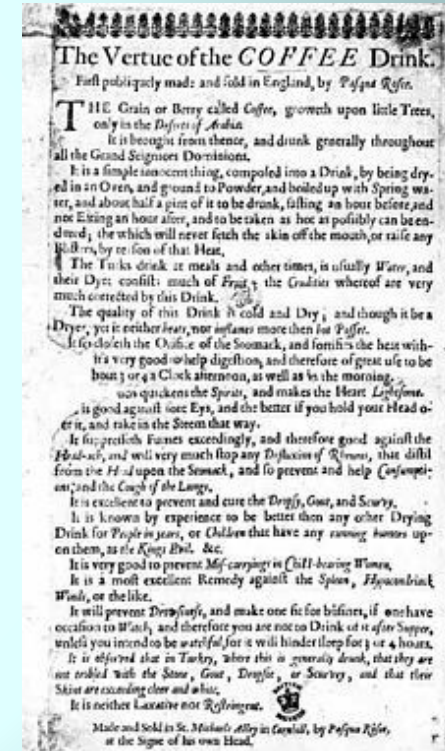 The Vertue of the COFFEE Drink.
First publiquely made and sold in England, by Pasqua Rosee.
THE Grain or Berry called Coffee, groweth upon little Trees,
only in the Deserts of Arabia.
It is brought from thence, and drunk generally throughout
all the Grand Seigniors Dominions.
It is a simple innocent thing, composed into a Drink, by being dry-
ed in an Oven, and ground to Powder, and boiled up with Spring wa-
ter, and about half a pint of it to be drunk, fasting an hour before, and
not Eating an hour after, and to be taken as hot as possibly can be en-
dured; the which will never fetch the skin off the mouth, or raise any
Blisters, by reason of that Heat.
The Turks drink at meals and other times, is usually Water, and
their Dyet consists much of Fruit; the Crudities whereof are very
much corrected by this Drink.
The quality of this Drink is cold and Dry; and though it be a
Dryer, yet it neither heats, nor inflames more then hot Posset.
It closeth the Orifice of the Stomack, and fortifies the heat with-
it's very good to help digestion, and therefore of great use to be
bout 3 or 4 a Clock afternoon, as well as in the morning.
quickens the Spirits, and makes the Heart Lightsome.
is good against sore Eys, and the better if you hold your Head o-
er it, and take in the Steem that way.
It suppresseth Fumes exceedingly, and therefore good against the
Head-ach, and will very much stop any Defluxion of Rheums, that distil
from the Head upon the Stomack, and so prevent and help Consumpti-
ons; and the Cough of the Lungs.
It is excellent to prevent and cure the Dropsy, Gout, and Scurvy.
It is known by experience to be better then any other Drying
Drink for People in years, or Children that have any running humors up-
on them, as the Kings Evil. &c.
It is very good to prevent Mis-carryings in Child-bearing Women.
It is a most excellent Remedy against the Spleen, Hypocondriack
Winds, or the like.
It will prevent Drowsiness, and make one fit for busines, if one have
occasion to Watch, and therefore you are not to Drink of it after Supper,
unless you intend to be watchful, for it will hinder sleep for 3 or 4 hours.
It is observed that in Turkey, where this is generally drunk, that they are
not trobled with the Stone, Gout, Dropsie, or Scurvey, and that their
Skins are exceeding cleer and white.
It is neither Laxative nor Restringent.
Made and Sold in St. Michaels Alley in Cornhill, by Pasqua Rosee,
at the Signe of his own Head.